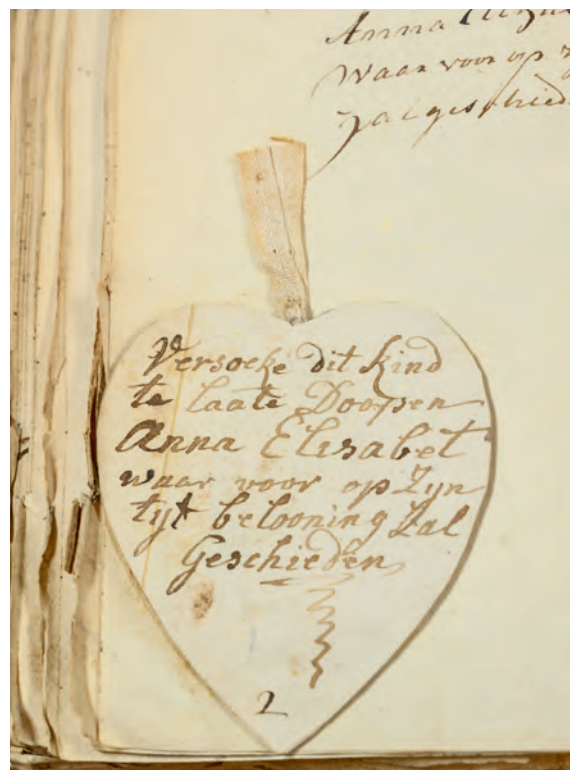 Anna
Waar voor op
Zal geschied
Versoeke dit kind
te laate Doopen
Anna Elisabet
waar voor op Zyn
tyt belooning Zal
Geschieden
2